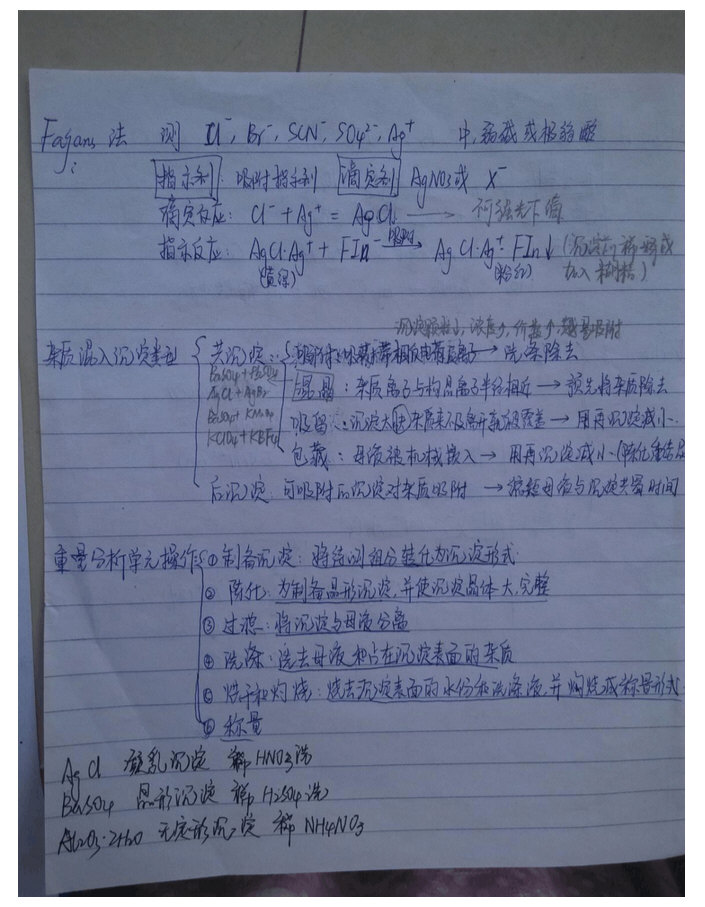 Fajans法 测 Cl⁻, Br⁻, SCN⁻, SO4²⁻, Ag⁺ 中,弱碱或极弱酸
: 指示剂: 吸附指示剂 滴定剂 AgNO3或 X⁻
滴定反应: Cl⁻ + Ag⁺ = AgCl
指示反应: AgCl·Ag⁺ + FIn⁻ 吸附→ AgCl·Ag⁺·FIn↓ (沉淀前稀释或
(黄绿) (粉红) 加入糊精)
沉淀颗粒↓, 浓度↑, 价数↑,
杂质混入沉淀类型 共沉淀: 相反电荷离子→洗涤除去
BaSO4+PbSO4
AgCl+AgBr 混晶: 杂质离子与构晶离子半径相近→预先将杂质除去
BaSO4+KMnO4 吸留: 沉淀太快杂质来不及离开就被覆盖→用再沉淀减小
KClO4+KBF4 包藏: 母液被机械嵌入→用再沉淀减小(陈化重结晶
后沉淀: 可吸附的沉淀对杂质吸附→缩短母液与沉淀共置时间
重量分析单元操作 ①制备沉淀: 将待测组分转化为沉淀形式
② 陈化: 为制备晶形沉淀,并使沉淀晶体大,完整
③ 过滤: 将沉淀与母液分离
④ 洗涤: 洗去母液和占在沉淀表面的杂质
⑤ 烘干和灼烧: 烧去沉淀表面的水份和洗涤液,并灼烧成称量形式
⑥ 称量
AgCl 凝乳沉淀 稀HNO3洗
BaSO4 晶形沉淀 稀H2SO4洗
Al2O3·2H2O 无定形沉淀 稀NH4NO3